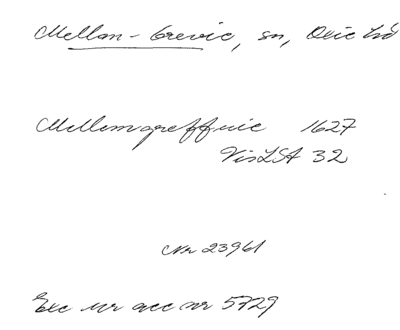 Mellan-Grevie, sn, Oxie hd
Mellomgreffuie 1627
VisLSA 32
Nr 23961
Exc ur acc nr 5729